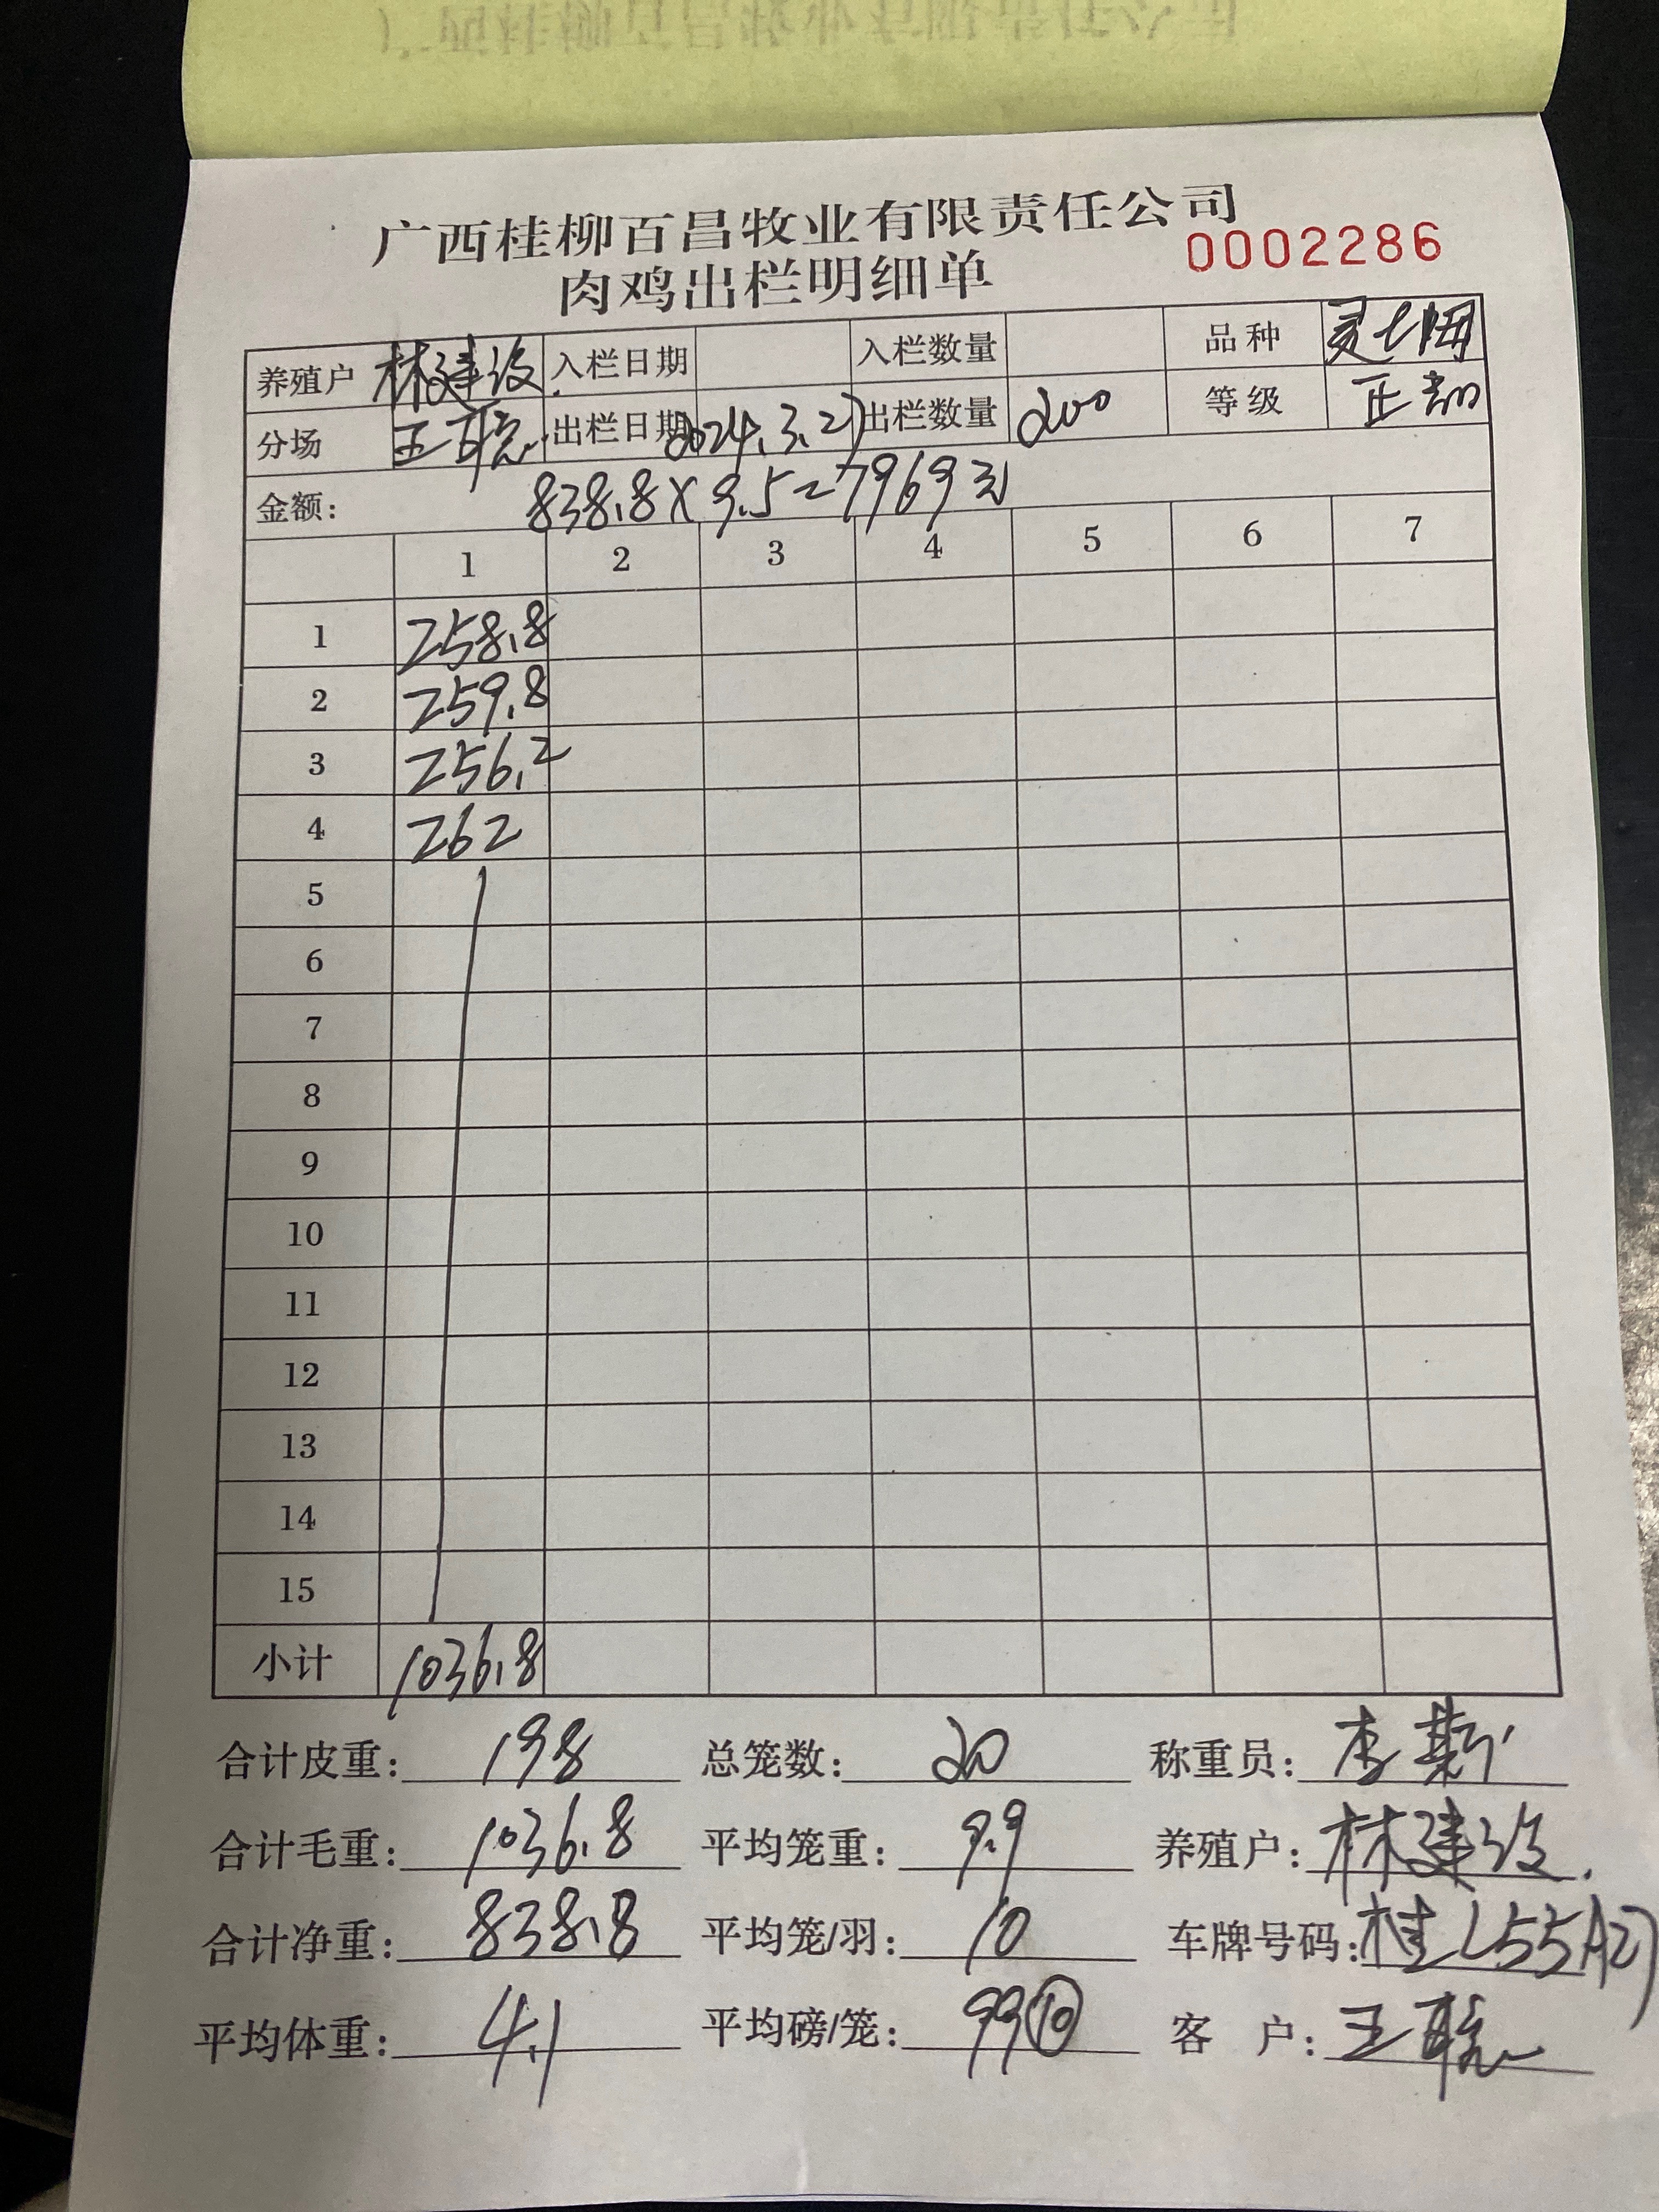 广西桂柳百昌牧业有限责任公司
0002286
肉鸡出栏明细单
养殖户 林建设 入栏日期 入栏数量 品种
分场 王聪 出栏日期 2024.3.27 出栏数量 200 等级 正
金额: 838.8×9.5=7969元
1 2 3 4 5 6 7
1 258.8
2 259.8
3 256.2
4 262
5
6
7
8
9
10
11
12
13
14
15
小计 1036.8
合计皮重: 198 总笼数: 20 称重员: 李
合计毛重: 1036.8 平均笼重: 9.9 养殖户: 林建设.
合计净重: 838.8 平均笼/羽: 10 车牌号码: 桂L55A27
平均体重: 4.1 平均磅/笼: 99⑩ 客 户: 王聪